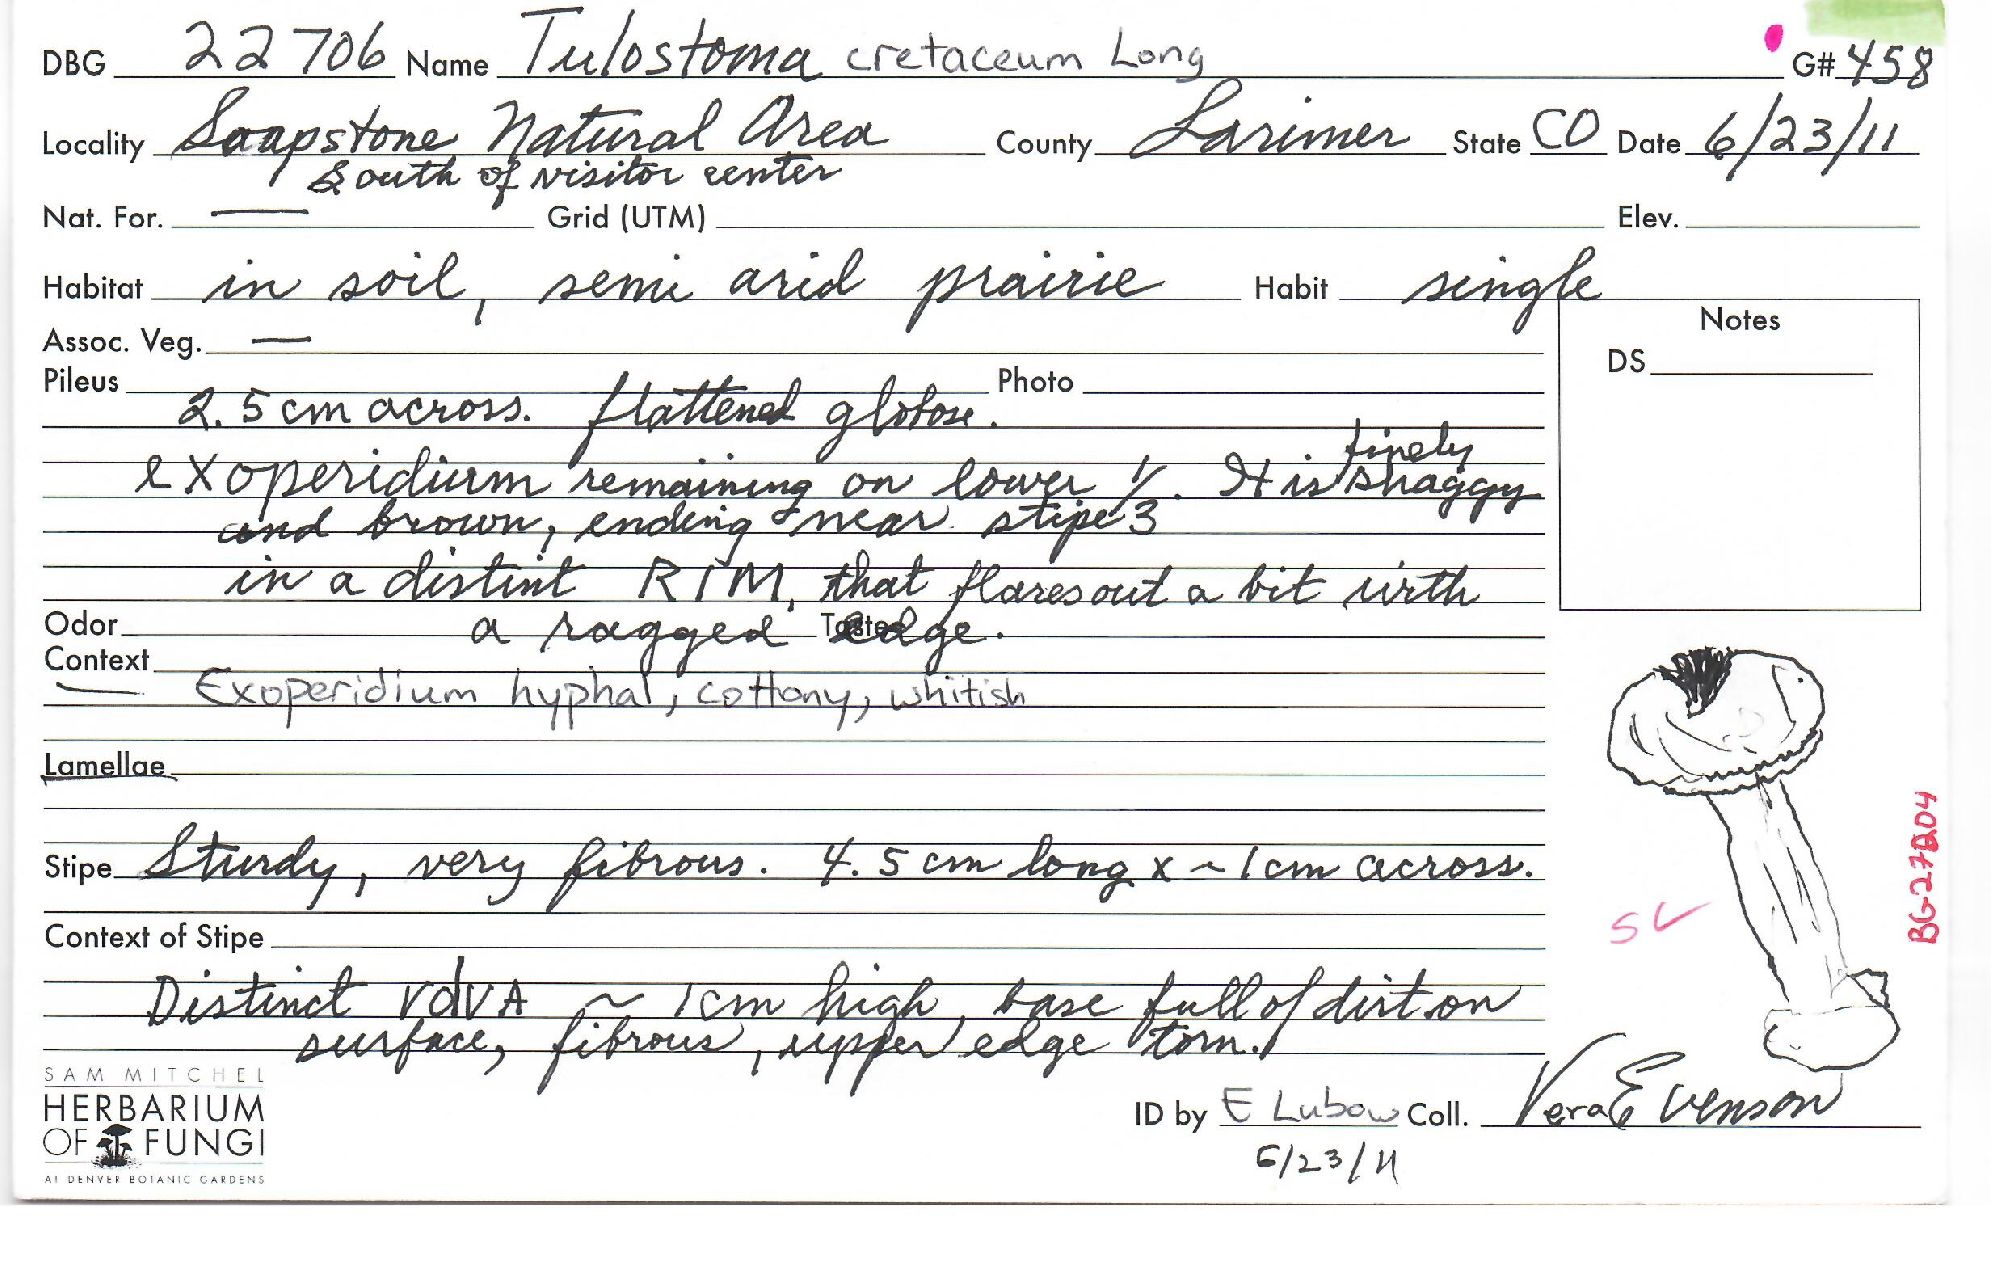 DBG 22706 Name Tulostoma cretaceum Long G# 458
Locality Soapstone Natural Area County Larimer State CO Date 6/23/11
South of visitor center
Nat. For. — Grid (UTM) Elev.
Habitat in soil, semi arid prairie Habit single
Assoc. Veg. — Notes
Pileus Photo DS
2.5 cm across. flattened globose.
finely
exoperidium remaining on lower 1/3. It is shaggy
and brown, ending near stipe
in a distint RIM, that flares out a bit with
Odor a ragged Taste edge.
Context
— Exoperidium hyphal, cottony, whitish
Lamellae
Stipe Sturdy, very fibrous. 4.5 cm long x ~ 1cm across.
Context of Stipe
Distinct VOLVA ~ 1cm high, base full of dirt on
surface, fibrous, upper edge torn.
SAM MITCHEL
HERBARIUM
OF FUNGI
AT DENVER BOTANIC GARDENS
ID by E Lubow Coll. Vera E Evenson
6/23/11